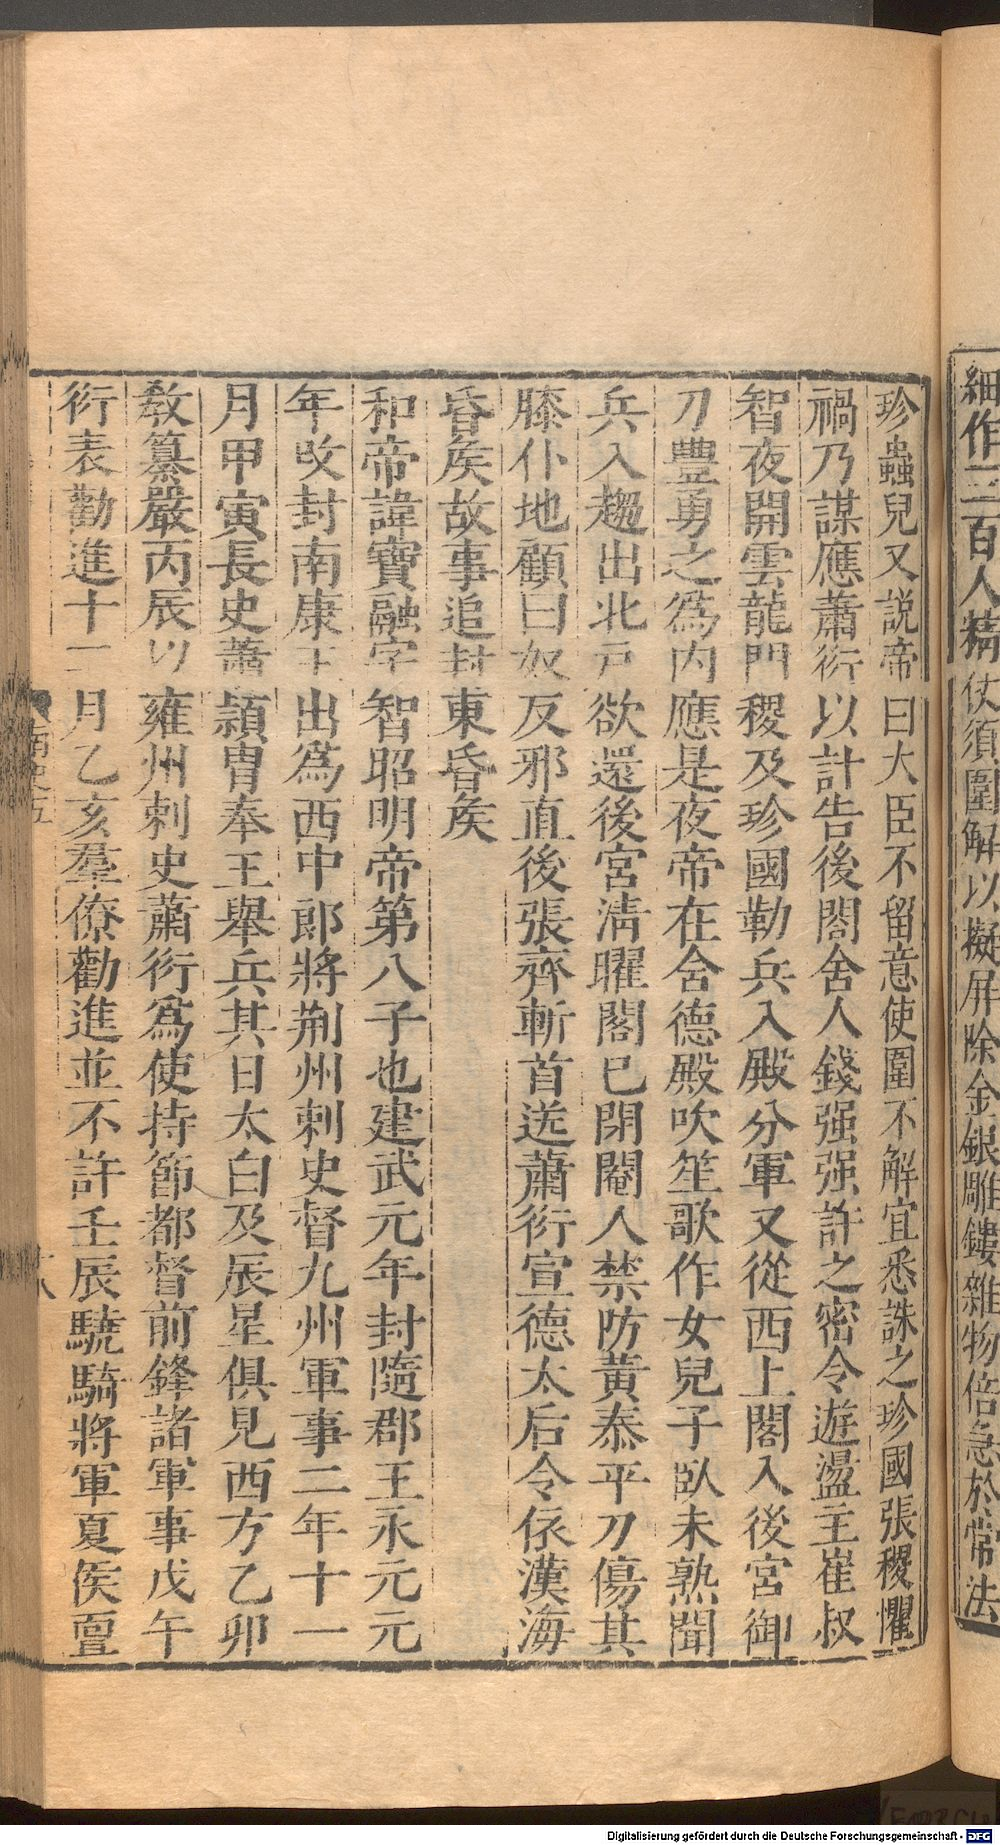 細作三百人精仗須圍解以擬屏除金銀雕鏤雜物倍急於常法
珍蟲兒又說帝曰大臣不留意使圍不解宜悉誅之珍國張稷懼
禍乃謀應蕭衍以計告後閤舍人錢强强許之密令遊盪主崔叔
智夜開雲龍門稷及珍國勒兵入殿分軍又從西上閤入後宮御
刀豐勇之爲内應是夜帝在含德殿吹笙歌作女兒子臥未熟聞
兵入趨出北戸欲還後宮淸曜閤已閉閹人禁防黄泰平刀傷其
膝仆地顧曰奴反邪直後張齊斬首送蕭衍宣德太后令依漢海
昏矦故事追封東昏矦
和帝諱寶融字智昭明帝第八子也建武元年封隨郡王永元元
年改封南康王出爲西中郎將荆州刺史督九州軍事二年十一
月甲寅長史蕭頴胄奉王舉兵其日太白及辰星俱見西方乙卯
敎纂嚴丙辰以雍州刺史蕭衍爲使持節都督前鋒諸軍事戊午
衍表勸進十二月乙亥羣僚勸進並不許壬辰驍騎將軍夏侯亶
南史五
十八
Digitalisierung gefördert durch die Deutsche Forschungsgemeinschaft - DFG